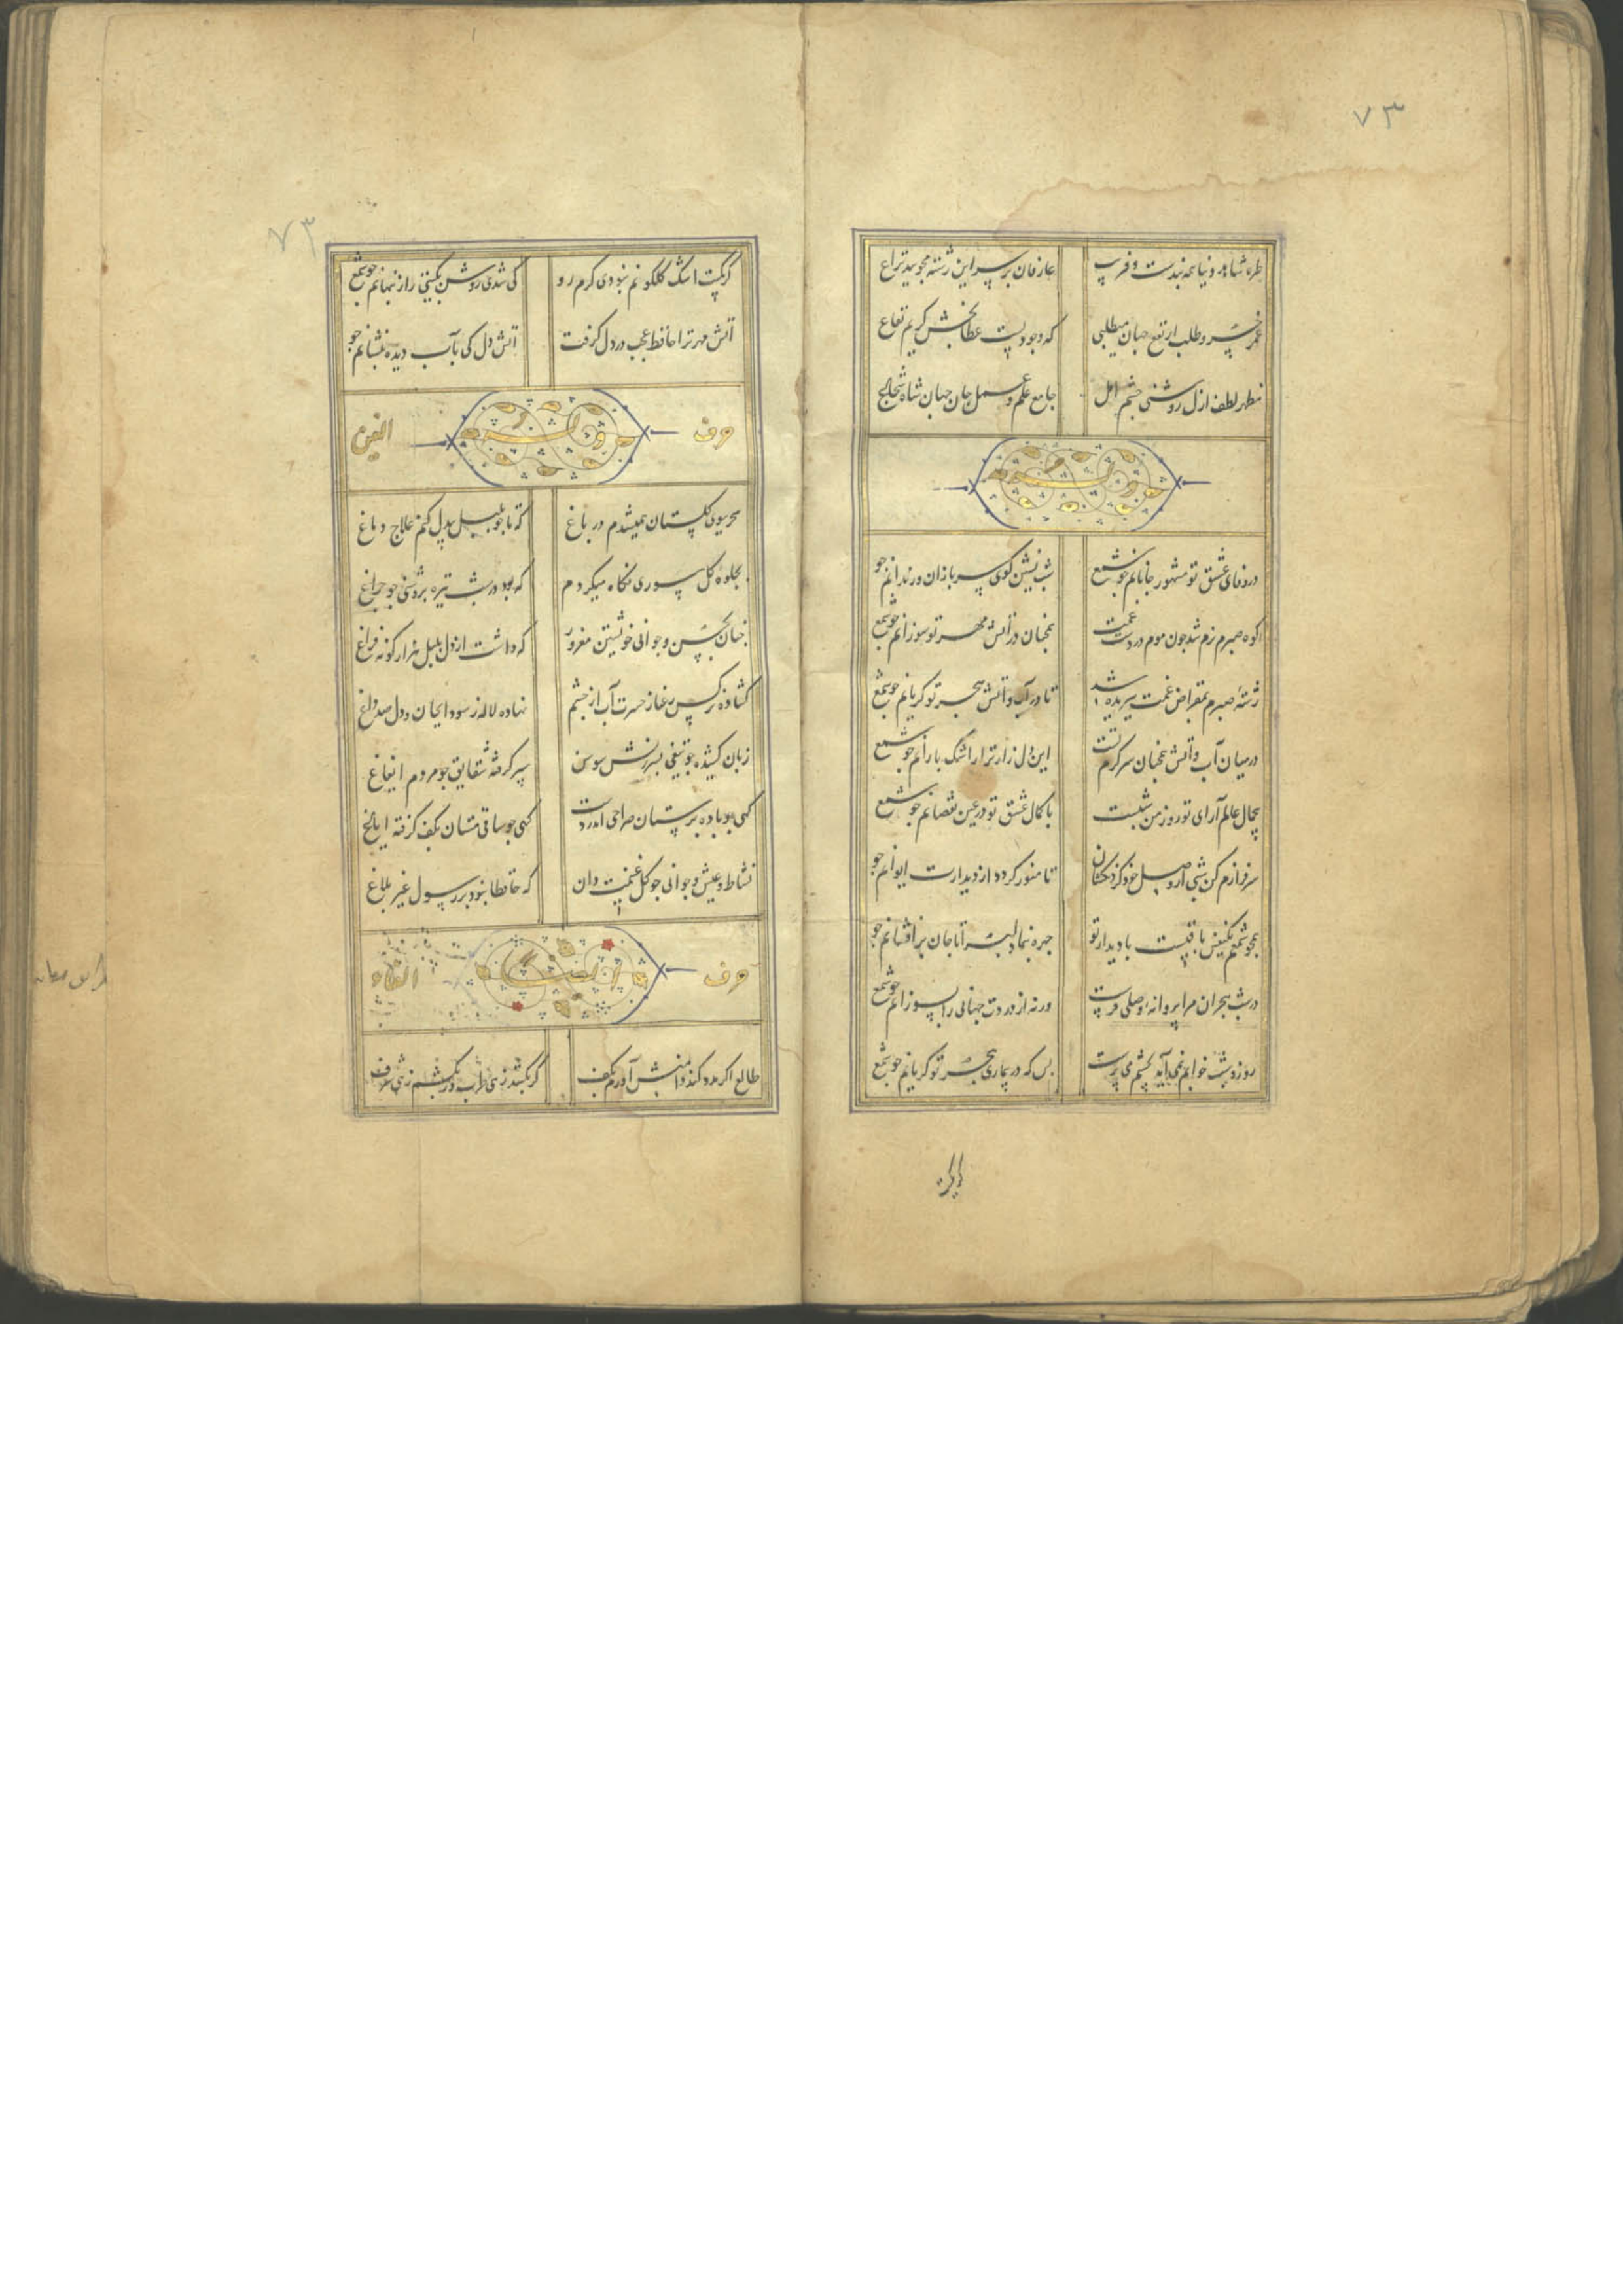 ۷۳
طره شاهد دنیا همه بندست و فریب
عارفان بر سر این رشته نجویند نزاع
عمر خسرو طلب ار نفع جهان میطلبی
که وجودیست عطابخش کریم نفاع
مظهر لطف ازل روشنی چشم امل
جامع علم و عمل جان جهان شاه شجاع
وله
در وفای عشق تو مشهور خوبانم جو شمع
شب نشین کوی سربازان و رندانم جو
کوه صبرم نرم شد جون موم در دست غمت
همجنان در آتش مهر تو سوزانم جو شمع
رشته صبرم بمقراض غمت ببریده شد
تا در آب و آتش هجر تو کریانم جو شمع
در میان آب و آتش همجنان سرکرم تست
این دل زار نزار اشک بارانم جو شمع
بی جمال عالم آرای تو روز من شبست
با کمال عشق تو در عین نقصانم جو شمع
سرفرازم کن شبی از وصل خود کردنکشان
تا منور کردد از دیدارت ایوانم جو
همجو شمعم یکنفس باقیست با دیدار تو
جهره بنما دلبرا تا جان برافشانم جو
در شب هجران مرا پروانه وصلی فرست
ورنه از دردت جهانی را بسوزانم جو شمع
روز و شب خوابم نمی آید بچشم می پرست
بس که در بیماری هجر تو کریانم جو شمع
۷۳
کر کمیت اشک کلکونم نبودی کرم رو
کی شدی روشن بکیتی راز پنهانم جو شمع
آتش مهر ترا حافظ عجب در دل کرفت
آتش دل کی بآب دیده بنشانم جو
حرف وله الغین
سحر ببوی کلستان همیشدم در باغ
که تا جو بلبل بیدل کنم علاج دماغ
بجلوه کل سوری نکاه میکردم
که بود در شب تیره بروشنی جو جراغ
جنان بحسن و جوانی خویشتن مغرور
که داشت از دل بلبل هزار کونه فراغ
کشاده نرکس رعنا ز حسرت آب از چشم
نهاده لاله ز سودا بجان و دل صد داغ
زبان کشیده جو تیغی بسرزنش سوسن
سپر کرفته شقایق جو مردم ایغاغ
کهی جو باده پرستان صراحی اندر دست
کهی جو ساقی مستان بکف کرفته ایاغ
نشاط و عیش و جوانی جو کل غنیمت دان
که حافظا نبود بر رسول غیر بلاغ
حرف الفاء
طالع اکر مدد کند دامنش آورم بکف
کر بکشد زهی طرب ور بکشم زهی شرف